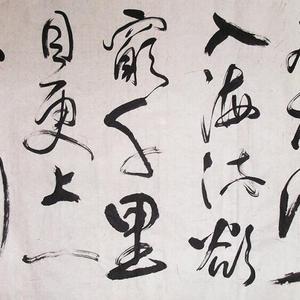 入海流欲
窮千里
目更上一